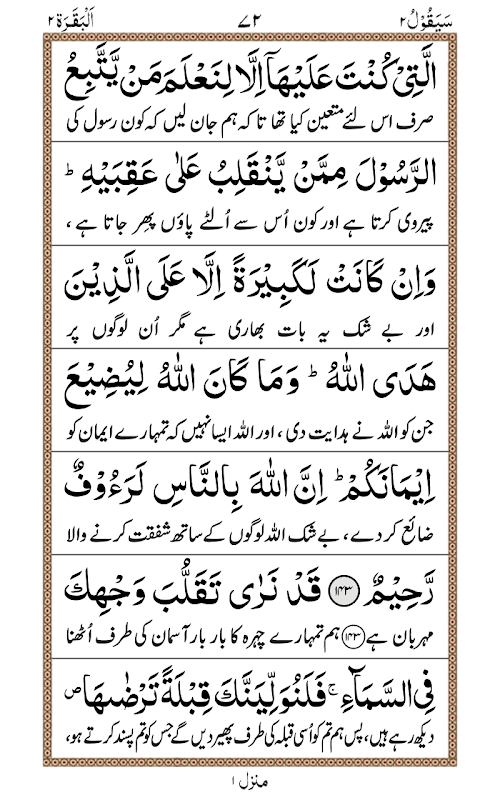 سَيَقُوْلُ ٢ ٧٢ اَلْبَقَرَة ٢
الَّتِىْ كُنْتَ عَلَيْهَاۤ اِلَّا لِنَعْلَمَ مَنْ يَّتَّبِعُ
صرف اس لئے متعین کیا تھا تا کہ ہم جان لیں کہ کون رسول کی
الرَّسُوْلَ مِمَّنْ يَّنْقَلِبُ عَلٰى عَقِبَيْهِ ؕ
پیروی کرتا ہے اور کون اُس سے اُلٹے پاؤں پھِر جاتا ہے ،
وَاِنْ كَانَتْ لَكَبِيْرَةً اِلَّا عَلَى الَّذِيْنَ
اور بے شک یہ بات بھاری ہے مگر اُن لوگوں پر
هَدَى اللّٰهُ ؕ وَمَا كَانَ اللّٰهُ لِيُضِيْعَ
جن کو اللہ نے ہدایت دی ، اور اللہ ایسا نہیں کہ تمہارے ایمان کو
اِيْمَانَكُمْ ؕ اِنَّ اللّٰهَ بِالنَّاسِ لَرَءُوْفٌ
ضائع کر دے ، بے شک اللہ لوگوں کے ساتھ شفقت کرنے والا
رَّحِيْمٌ ١٤٣ قَدْ نَرٰى تَقَلُّبَ وَجْهِكَ
مہربان ہے ١٤٣ ہم تمہارے چہرہ کا بار بار آسمان کی طرف اُٹھنا
فِى السَّمَآءِ ۚ فَلَنُوَلِّيَنَّكَ قِبْلَةً تَرْضٰىهَا ص
دیکھ رہے ہیں، پس ہم تم کو اُسی قبلہ کی طرف پھیر دیں گے جس کو تم پسند کرتے ہو،
منزل ١